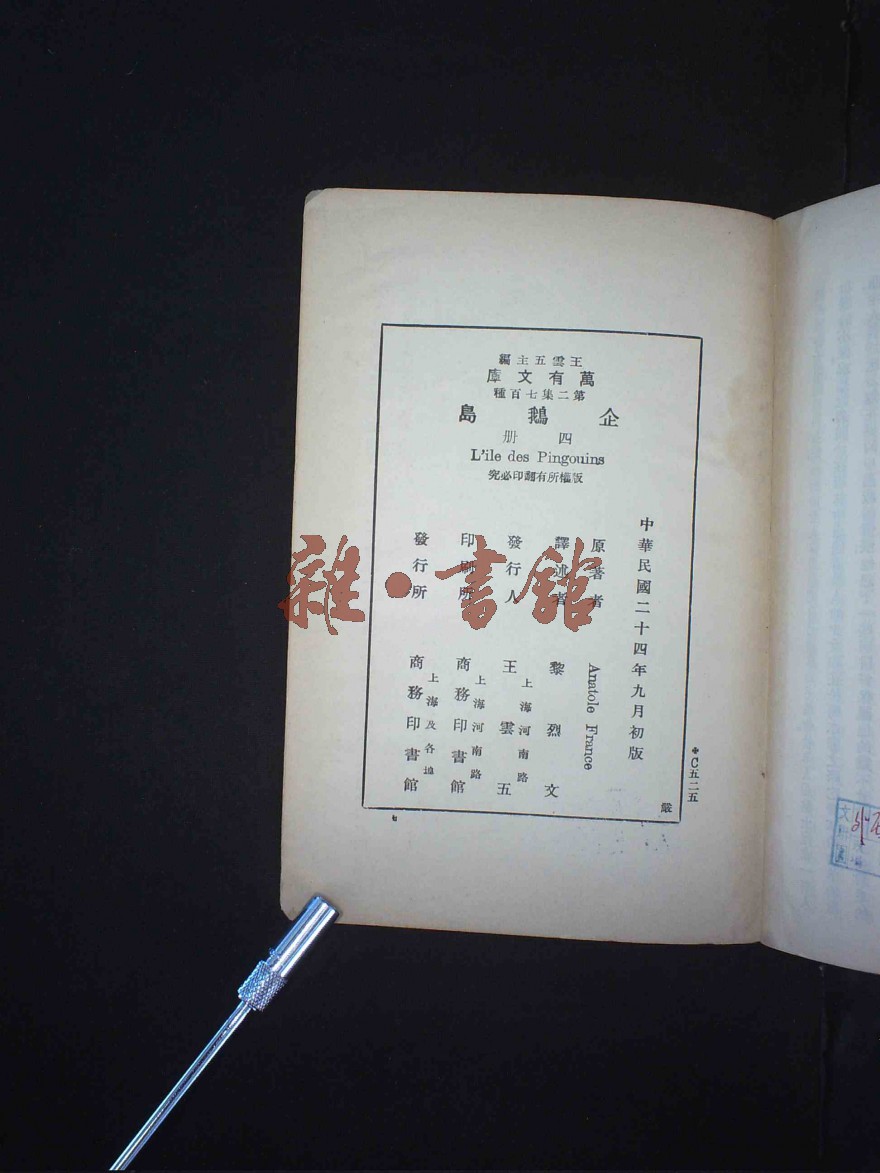 王雲五主編
萬有文庫
第二集七百種
企鵝島
四册
L'ile des Pingouins
版權所有翻印必究
中華民國二十四年九月初版
原著者 Anatole France
譯述者 黎烈文
發行人 王雲五
上海河南路
印刷所 商務印書館
上海河南路
發行所 商務印書館
上海及各埠
＊C五二五
嚴
雜·書館